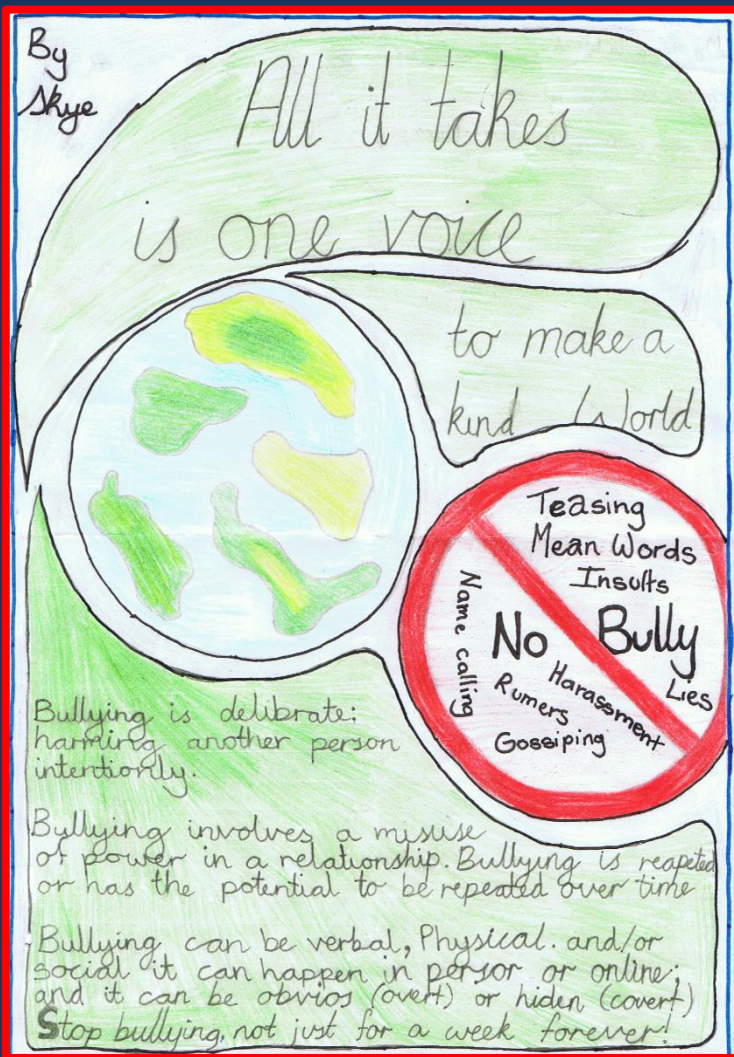 By
Skye
All it takes
is one voice
to make a
kind World
Teasing
Mean Words
Insults
No Bully
Name calling
Lies
Harassment
Rumers
Gossiping
Bullying is delibrate;
harming another person
intentionly.
Bullying involves a misuse
of power in a relationship. Bullying is reapeted
or has the potential to be repeated over time
Bullying can be verbal, Physical. and/or
social it can happen in person or online;
and it can be obvios (overt) or hiden (covert)
Stop bullying, not just for a week forever!